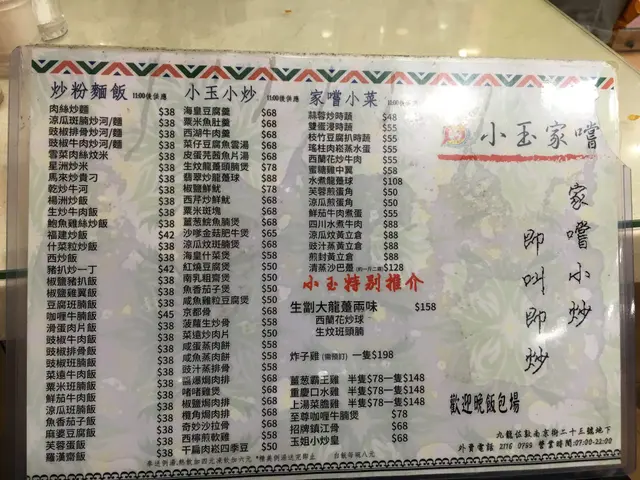 炒粉麵飯 11:00後供應
肉絲炒麵 $38
涼瓜斑腩炒河/麵 $38
豉椒排骨炒河/麵 $38
豉椒牛肉炒河/麵 $38
雪菜肉絲炆米 $38
星洲炒米 $38
馬來炒貴刁 $38
乾炒牛河 $38
楊洲炒飯 $38
生炒牛肉飯 $38
鮑魚雞絲炒飯 $38
福建炒飯 $42
什菜粒炒飯 $38
西炒飯 $38
豬扒炒一丁 $42
椒鹽豬扒飯 $38
椒鹽雞翼飯 $38
豆腐斑腩飯 $38
咖喱牛腩飯 $45
滑蛋肉片飯 $38
豉椒牛肉飯 $38
豉椒排骨飯 $38
豉椒斑腩飯 $38
菜遠牛肉飯 $38
粟米斑腩飯 $38
鮮茄牛肉飯 $38
涼瓜斑腩飯 $38
魚香茄子飯 $38
麻婆豆腐飯 $38
芙蓉蛋飯 $38
羅漢齋飯 $38
小玉小炒 11:00後供應
海皇豆腐羹 $68
粟米魚肚羹 $68
西湖牛肉羹 $68
菜仔豆腐魚雲湯 $68
皮蛋芫茜魚片湯 $68
生炆龍躉頭腩煲 $78
翡翠炒龍躉球 $88
椒鹽鮮魷 $78
西芹炒鮮魷 $68
粟米斑塊 $68
薑葱鯇魚腩煲 $68
沙嗲金菇肥牛煲 $65
涼瓜炆斑腩煲 $68
海皇什菜煲 $68
紅燒豆腐煲 $50
南乳粗齋煲 $50
魚香茄子煲 $50
咸魚雞粒豆腐煲 $50
京都骨 $68
菠蘿生炒骨 $68
菜遠炒肉片 $50
咸蛋蒸肉餅 $50
咸魚蒸肉餅 $50
豉汁蒸排骨 $50
區爆焗肉排 $68
啫啫雞煲 $68
椒鹽焗肉排 $68
欖角焗肉排 $68
奇妙沙拉骨 $68
西檸煎軟雞 $58
干扁肉崧四季豆 $50
家嚐小菜 11:00後供應
蒜蓉炒時蔬 $48
雙蛋浸時蔬 $55
枝竹豆腐扒時蔬 $55
瑤柱肉崧蒸水蛋 $55
西蘭花炒牛肉 $55
蜜糖雞中翼 $58
水煮龍躉球 $108
芙蓉煎蛋角 $50
涼瓜煎蛋角 $50
鮮茄牛肉煮蛋 $55
四川水煮牛肉 $88
涼瓜炆黃立倉 $88
豉汁蒸黃立倉 $88
煎封黃立倉 $88
清蒸沙巴躉 (約一斤二両) $128
小玉特別推介
生劏大龍躉兩味 $158
西蘭花炒球
生炆班頭腩
炸子雞 (需預訂) 一隻$198
薑葱霸王雞 半隻$78一隻$148
重慶口水雞 半隻$78一隻$148
上湯菜膽雞 半隻$78一隻$148
至尊咖喱牛腩煲 $78
招牌鎮江骨 $68
玉姐小炒皇 $68
奉送例湯,熱飲加四元凍飲加六元 *精美例湯送完即止 白飯每碗八元
小玉家嚐
家嚐小炒
即叫即炒
歡迎晚飯包場
九龍佐敦南京街二十三號地下
外賣電話 2116 0799 營業時間:07:00-22:00